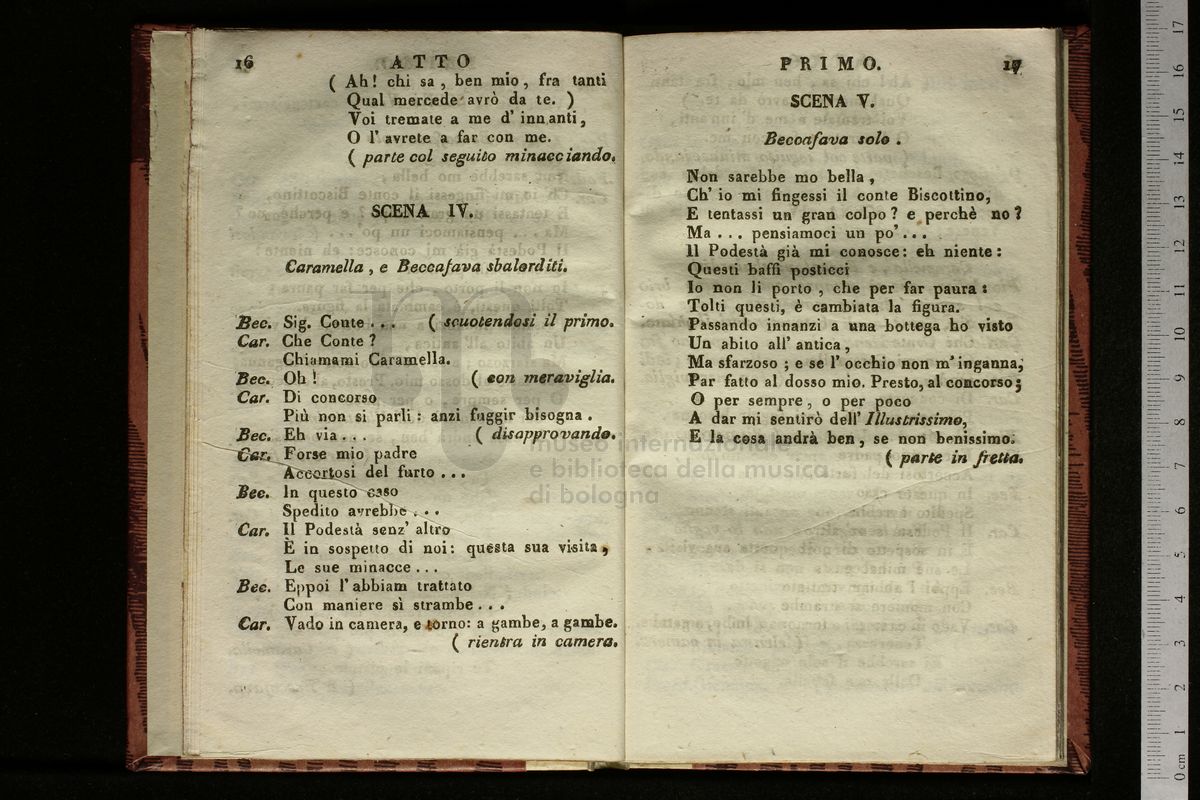 16 ATTO
( Ah! chi sa, ben mio, fra tanti
Qual mercede avrò da te. )
Voi tremate a me d' innanti,
O l' avrete a far con me.
( parte col seguito minacciando.
SCENA IV.
Caramella, e Beccafava sbalorditi.
Bec. Sig. Conte... ( scuotendosi il primo.
Car. Che Conte?
Chiamami Caramella.
Bec. Oh! ( con meraviglia.
Car. Di concorso
Più non si parli: anzi fuggir bisogna.
Bec. Eh via... ( disapprovando.
Car. Forse mio padre
Accortosi del furto...
Bec. In questo caso
Spedito avrebbe...
Car. Il Podestà senz' altro
È in sospetto di noi: questa sua visita,
Le sue minacce...
Bec. Eppoi l' abbiam trattato
Con maniere sì strambe...
Car. Vado in camera, e torno: a gambe, a gambe.
( rientra in camera.
PRIMO. 17
SCENA V.
Beccafava solo.
Non sarebbe mo bella,
Ch' io mi fingessi il conte Biscottino,
E tentassi un gran colpo? e perchè no?
Ma... pensiamoci un po'...
Il Podestà già mi conosce: eh niente:
Questi baffi posticci
Io non li porto, che per far paura:
Tolti questi, è cambiata la figura.
Passando innanzi a una bottega ho visto
Un abito all' antica,
Ma sfarzoso; e se l' occhio non m' inganna,
Par fatto al dosso mio. Presto, al concorso;
O per sempre, o per poco
A dar mi sentirò dell' Illustrissimo,
E la cosa andrà ben, se non benissimo.
( parte in fretta.
museo internazionale
e biblioteca della musica
di bologna
0 cm 1 2 3 4 5 6 7 8 9 10 11 12 13 14 15 16 17